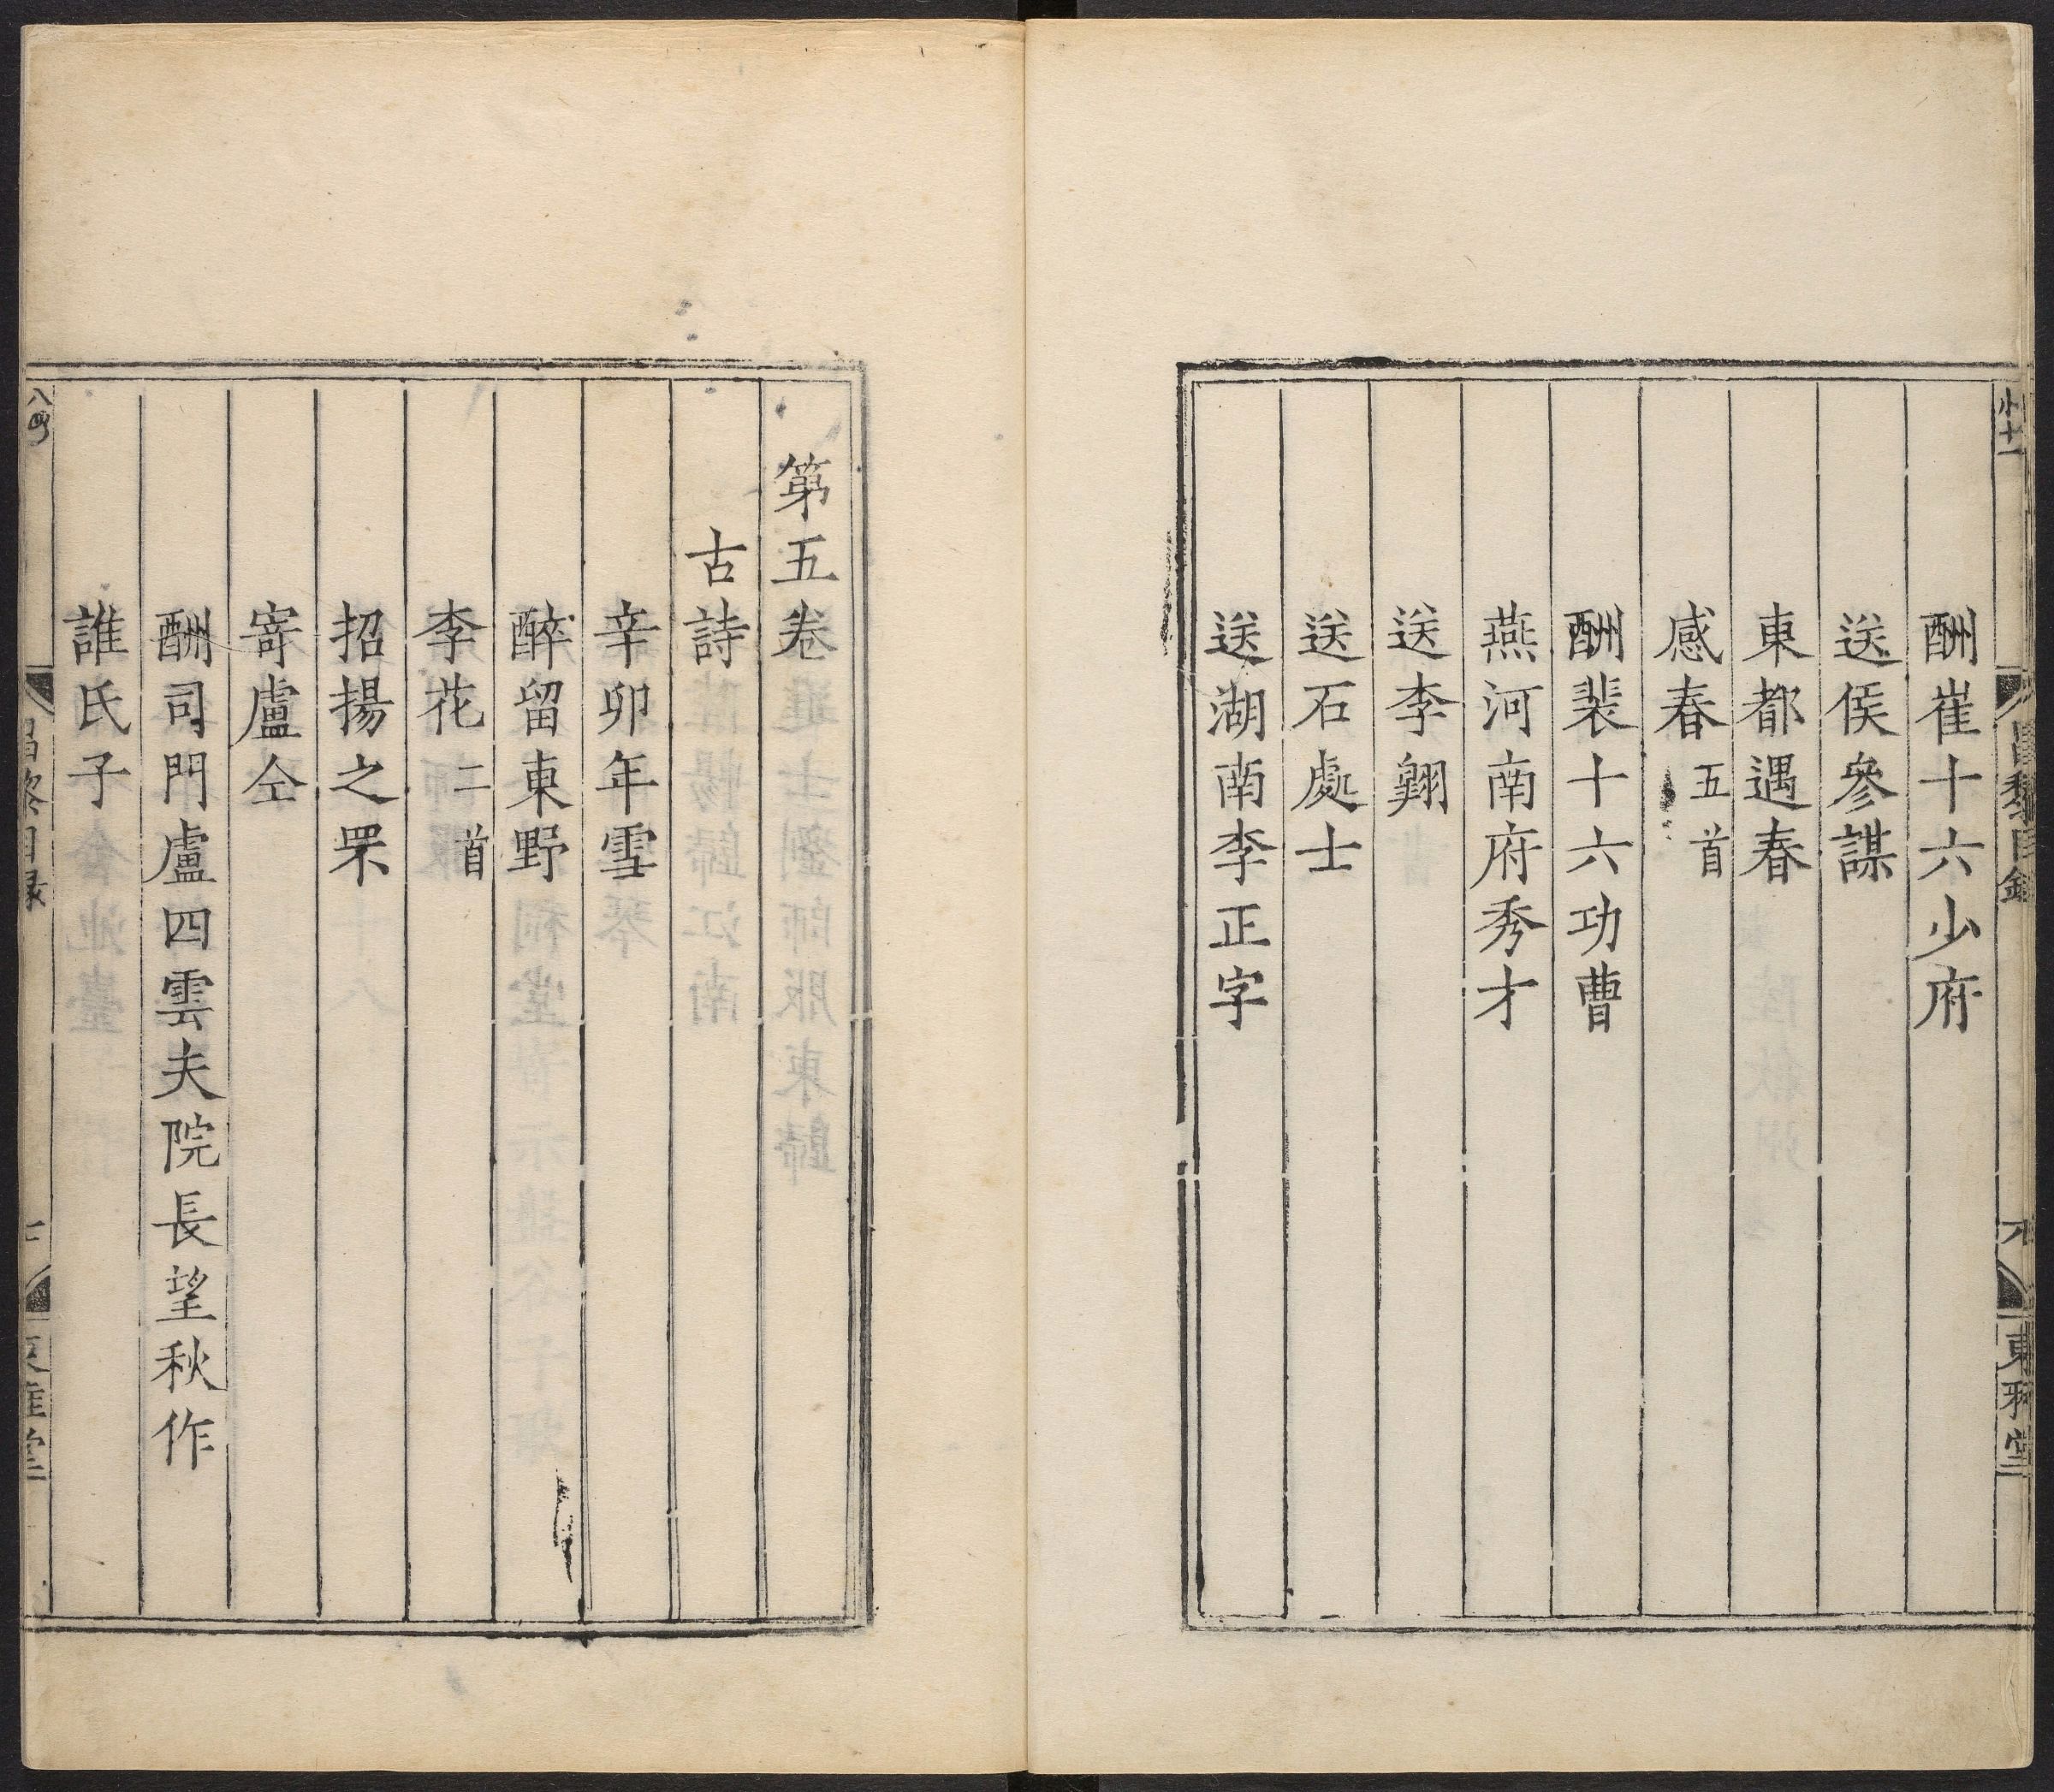 酬崔十六少府
送侯參謀
東都遇春
感春五首
酬裴十六功曹
燕河南府秀才
送李翱
送石處士
送湖南李正字
昌黎目錄
東雅堂
第五卷
古詩
辛卯年雪
醉留東野
李花二首
招揚之罘
寄盧仝
酬司門盧四雲夫院長望秋作
誰氏子
昌黎目錄
東雅堂